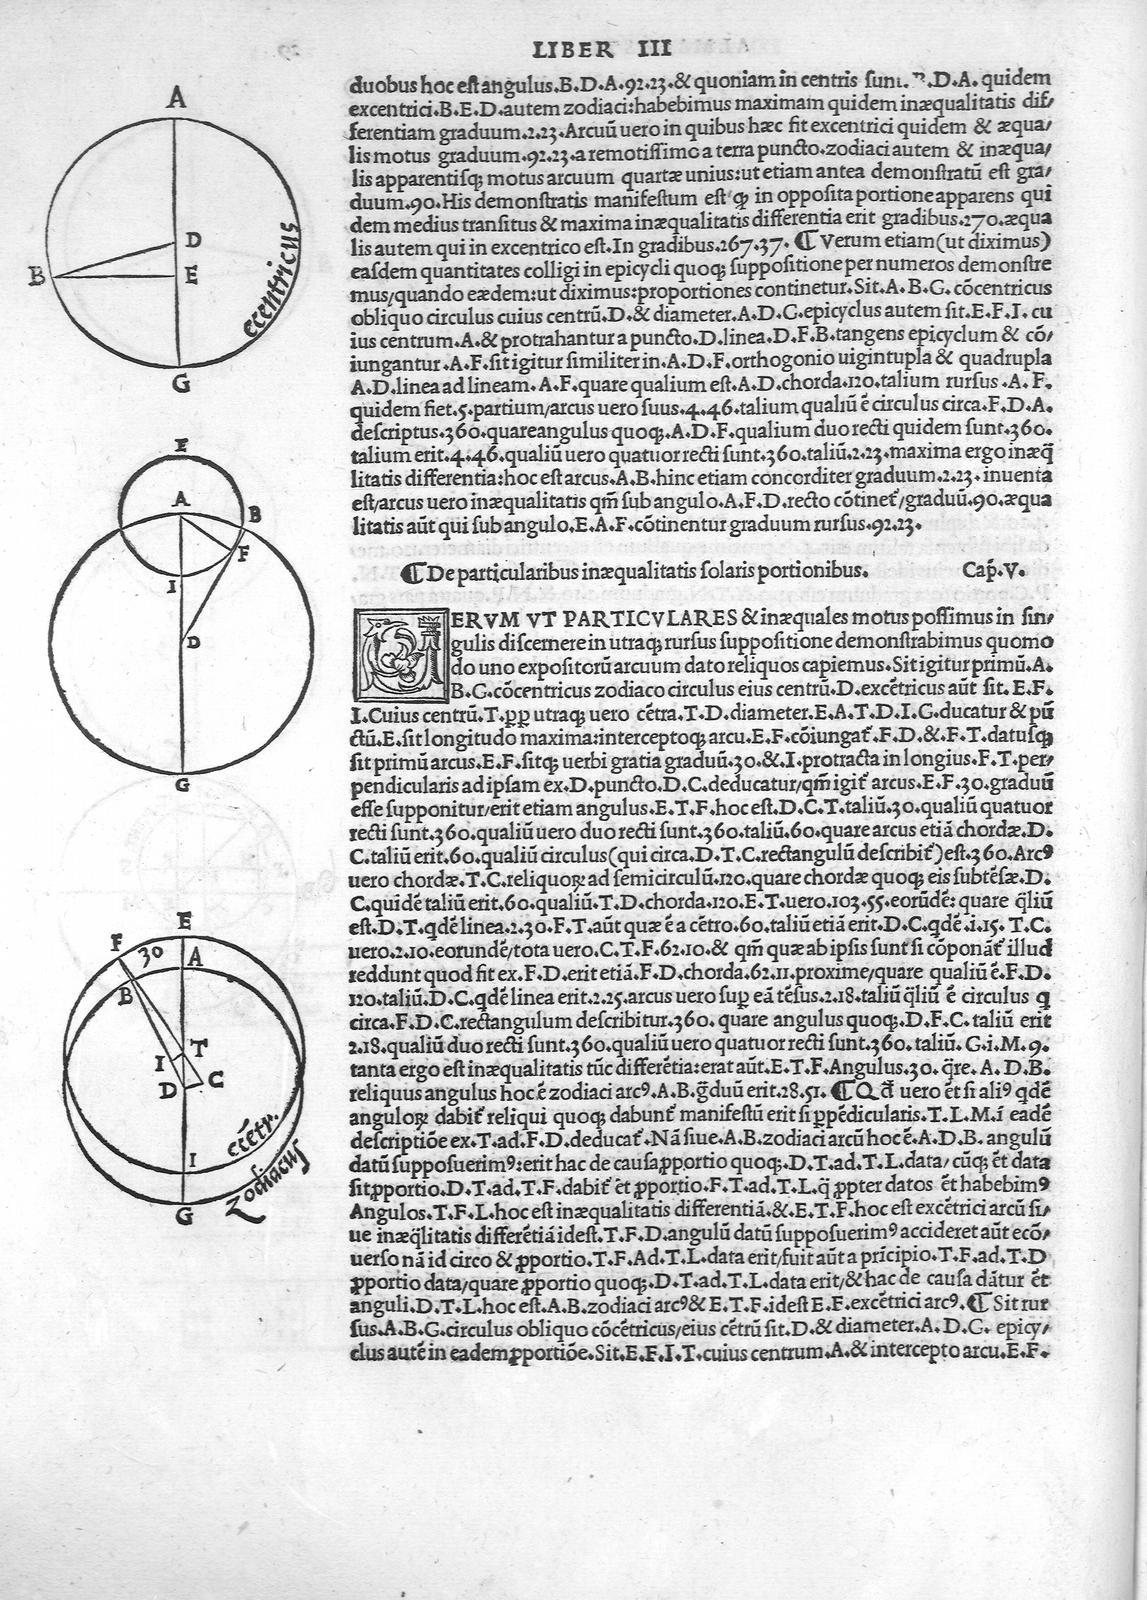 LIBER III
duobus hoc eſt angulus.B.D.A.92.23.& quoniam in centris ſunt. D.A. quidem
excentrici.B.E.D.autem zodiaci:habebimus maximam quidem inæqualitatis dif/
ferentiam graduum.2.23.Arcuū uero in quibus hæc fit excentrici quidem & æqua/
lis motus graduum.92.23.a remotiſſimo a terra puncto.zodiaci autem & inæqua/
lis apparentiſqꝫ motus arcuum quartæ unius:ut etiam antea demonſtratū eſt gra/
duum.90.His demonſtratis manifeſtum eſt ꝙ in oppoſita portione apparens qui
dem medius tranſitus & maxima inæqualitatis differentia erit gradibus.270.æqua
lis autem qui in excentrico eſt.In gradibus.267.37.¶ Verum etiam(ut diximus)
eaſdem quantitates colligi in epicycli quoqꝫ ſuppoſitione per numeros demonſtre
mus/quando eædem:ut diximus:proportiones continetur.Sit.A.B.G.cōcentricus
obliquo circulus cuius centrū.D.& diameter.A.D.G.epicyclus autem ſit.E.F.I.cu
ius centrum.A.& protrahantur a puncto.D.linea.D.F.B.tangens epicyclum & cō/
iungantur.A.F.ſit igitur ſimiliter in.A.D.F.orthogonio uigintupla & quadrupla
A.D.linea ad lineam.A.F.quare qualium eſt.A.D.chorda.120.talium rurſus.A.F.
quidem fiet.5.partium/arcus uero ſuus.4.46.talium qualiū ē circulus circa.F.D.A.
deſcriptus.360.quare angulus quoqꝫ.A.D.F.qualium duo recti quidem ſunt.360.
talium erit.4.46.qualiū uero quatuor recti ſunt.360.taliū.2.23.maxima ergo inæq̄
litatis differentia:hoc eſt arcus.A.B.hinc etiam concorditer graduum.2.23.inuenta
eſt/arcus uero inæqualitatis qm̄ ſub angulo.A.F.D.recto cōtinet̄/graduū.90.æqua
litatis aūt qui ſub angulo.E.A.F.cōtinentur graduum rurſus.92.23.
¶ De particularibus inæqualitatis ſolaris portionibus. Cap̄.V.
ERVM VT PARTICVLARES & inæquales motus poſſimus in ſin/
gulis diſcernere in utraqꝫ rurſus ſuppoſitione demonſtrabimus quomo
do uno expoſitorū arcuum dato reliquos capiemus.Sit igitur primū.A.
B.G.cōcentricus zodiaco circulus eius centrū.D.excētricus aūt ſit.E.F.
I.Cuius centrū.T.ꝑꝑ utraqꝫ uero cētra.T.D.diameter.E.A.T.D.I.G.ducatur & pū
ctū.E.ſit longitudo maxima:interceptoqꝫ arcu.E.F.cōiungat̄.F.D.&.F.T.datuſqꝫ
ſit primū arcus.E.F.ſitqꝫ uerbi gratia graduū.30.&.I.protracta in longius.F.T.per/
pendicularis ad ipſam ex.D.puncto.D.C.deducatur/qm̄ igit̄ arcus.E.F.30.graduū
eſſe ſupponitur/erit etiam angulus.E.T.F.hoc eſt.D.C.T.taliū.30.qualiū quatuor
recti ſunt.360.qualiū uero duo recti ſunt.360.taliū.60.quare arcus etiā chordæ.D.
C.taliū erit.60.qualiū circulus(qui circa.D.T.C.rectangulū deſcribit̄)eſt.360.Arcꝰ
uero chordæ.T.C.reliquoꝝ ad ſemicirculū.120.quare chordæ quoqꝫ eis ſubtēſæ.D.
C.quidē taliū erit.60.qualiū.T.D.chorda.120.E.T.uero.103.55.eorūdē: quare q̄liū
eſt.D.T.qdē linea.2.30.F.T.aūt quæ ē a cētro.60.taliū etiā erit.D.C.qdē.1.15. T.C.
uero.2.10.eorundē/tota uero.C.T.F.62.10.& qm̄ quæ ab ipſis ſunt ſi cōponāt̄ illud
reddunt quod fit ex.F.D.erit etiā.F.D.chorda.62.11.proxime/quare qualiū ē.F.D.
120.taliū.D.C.qdē linea erit.2.25.arcus uero ſuꝑ eā tēſus.2.18.taliū q̄liū ē circulus q
circa.F.D.C.rectangulum deſcribitur.360. quare angulus quoqꝫ.D.F.C. taliū erit
2.18.qualiū duo recti ſunt.360.qualiū uero quatuor recti ſunt.360. taliū.G.i.M.9.
tanta ergo eſt inæqualitatis tūc differētia:erat aūt.E.T.F.Angulus.30.q̄re.A.D.B.
reliquus angulus hoc ē zodiaci arcꝰ.A.B.ḡduū erit.28.51.¶ Qđ uero ēt ſi aliꝰ qdē
anguloꝝ dabit̄ reliqui quoqꝫ dabunt̄ manifeſtū erit ſi ꝑpēdicularis.T.L.M.ī eadē
deſcriptiōe ex.T.ad.F.D.deducat̄.Nā ſiue.A.B.zodiaci arcū hoc ē.A.D.B.angulū
datū ſuppoſuerimꝰ:erit hac de cauſa ꝓportio quoqꝫ.D.T.ad.T.L.data/cūqꝫ ēt data
ſit ꝓportio.D.T.ad.T.F.dabit̄ ēt ꝓportio.F.T.ad.T.L.q̄ ꝓpter datos ēt habebimꝰ
Angulos.T.F.L.hoc eſt inæqualitatis differētiā.&.E.T.F.hoc eſt excētrici arcū ſi/
ue inæq̄litatis differētiā ideſt.T.F.D.angulū datū ſuppoſuerimꝰ accideret aūt ecō/
uerſo nā id circo & ꝓportio.T.F.Ad.T.L.data erit/fuit aūt a prīcipio.T.F.ad.T.D
ꝓportio data/quare ꝓportio quoqꝫ.D.T.ad.T.L.data erit/& hac de cauſa dātur ēt
anguli.D.T.L.hoc eſt.A.B.zodiaci arcꝰ & E.T.F.ideſt E.F.excētrici arcꝰ.¶ Sit rur
ſus.A.B.G.circulus obliquo cōcētricus/eius cētrū ſit.D.& diameter.A.D.G. epicy/
clus autē in eadem ꝓportiōe.Sit.E.F.I.T.cuius centrum.A.& intercepto arcu.E.F.
A
D
B
E
G
ecentricus
E
A
B
F
I
D
G
E
F
30
A
B
T
I
D
C
I
G
ecētr.
Zodiacus